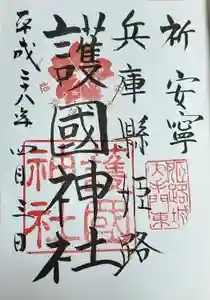 祈安寧
兵庫縣姫路
護國神社
平成二十八年四月三日
姫路城
大手前東
護國
神社